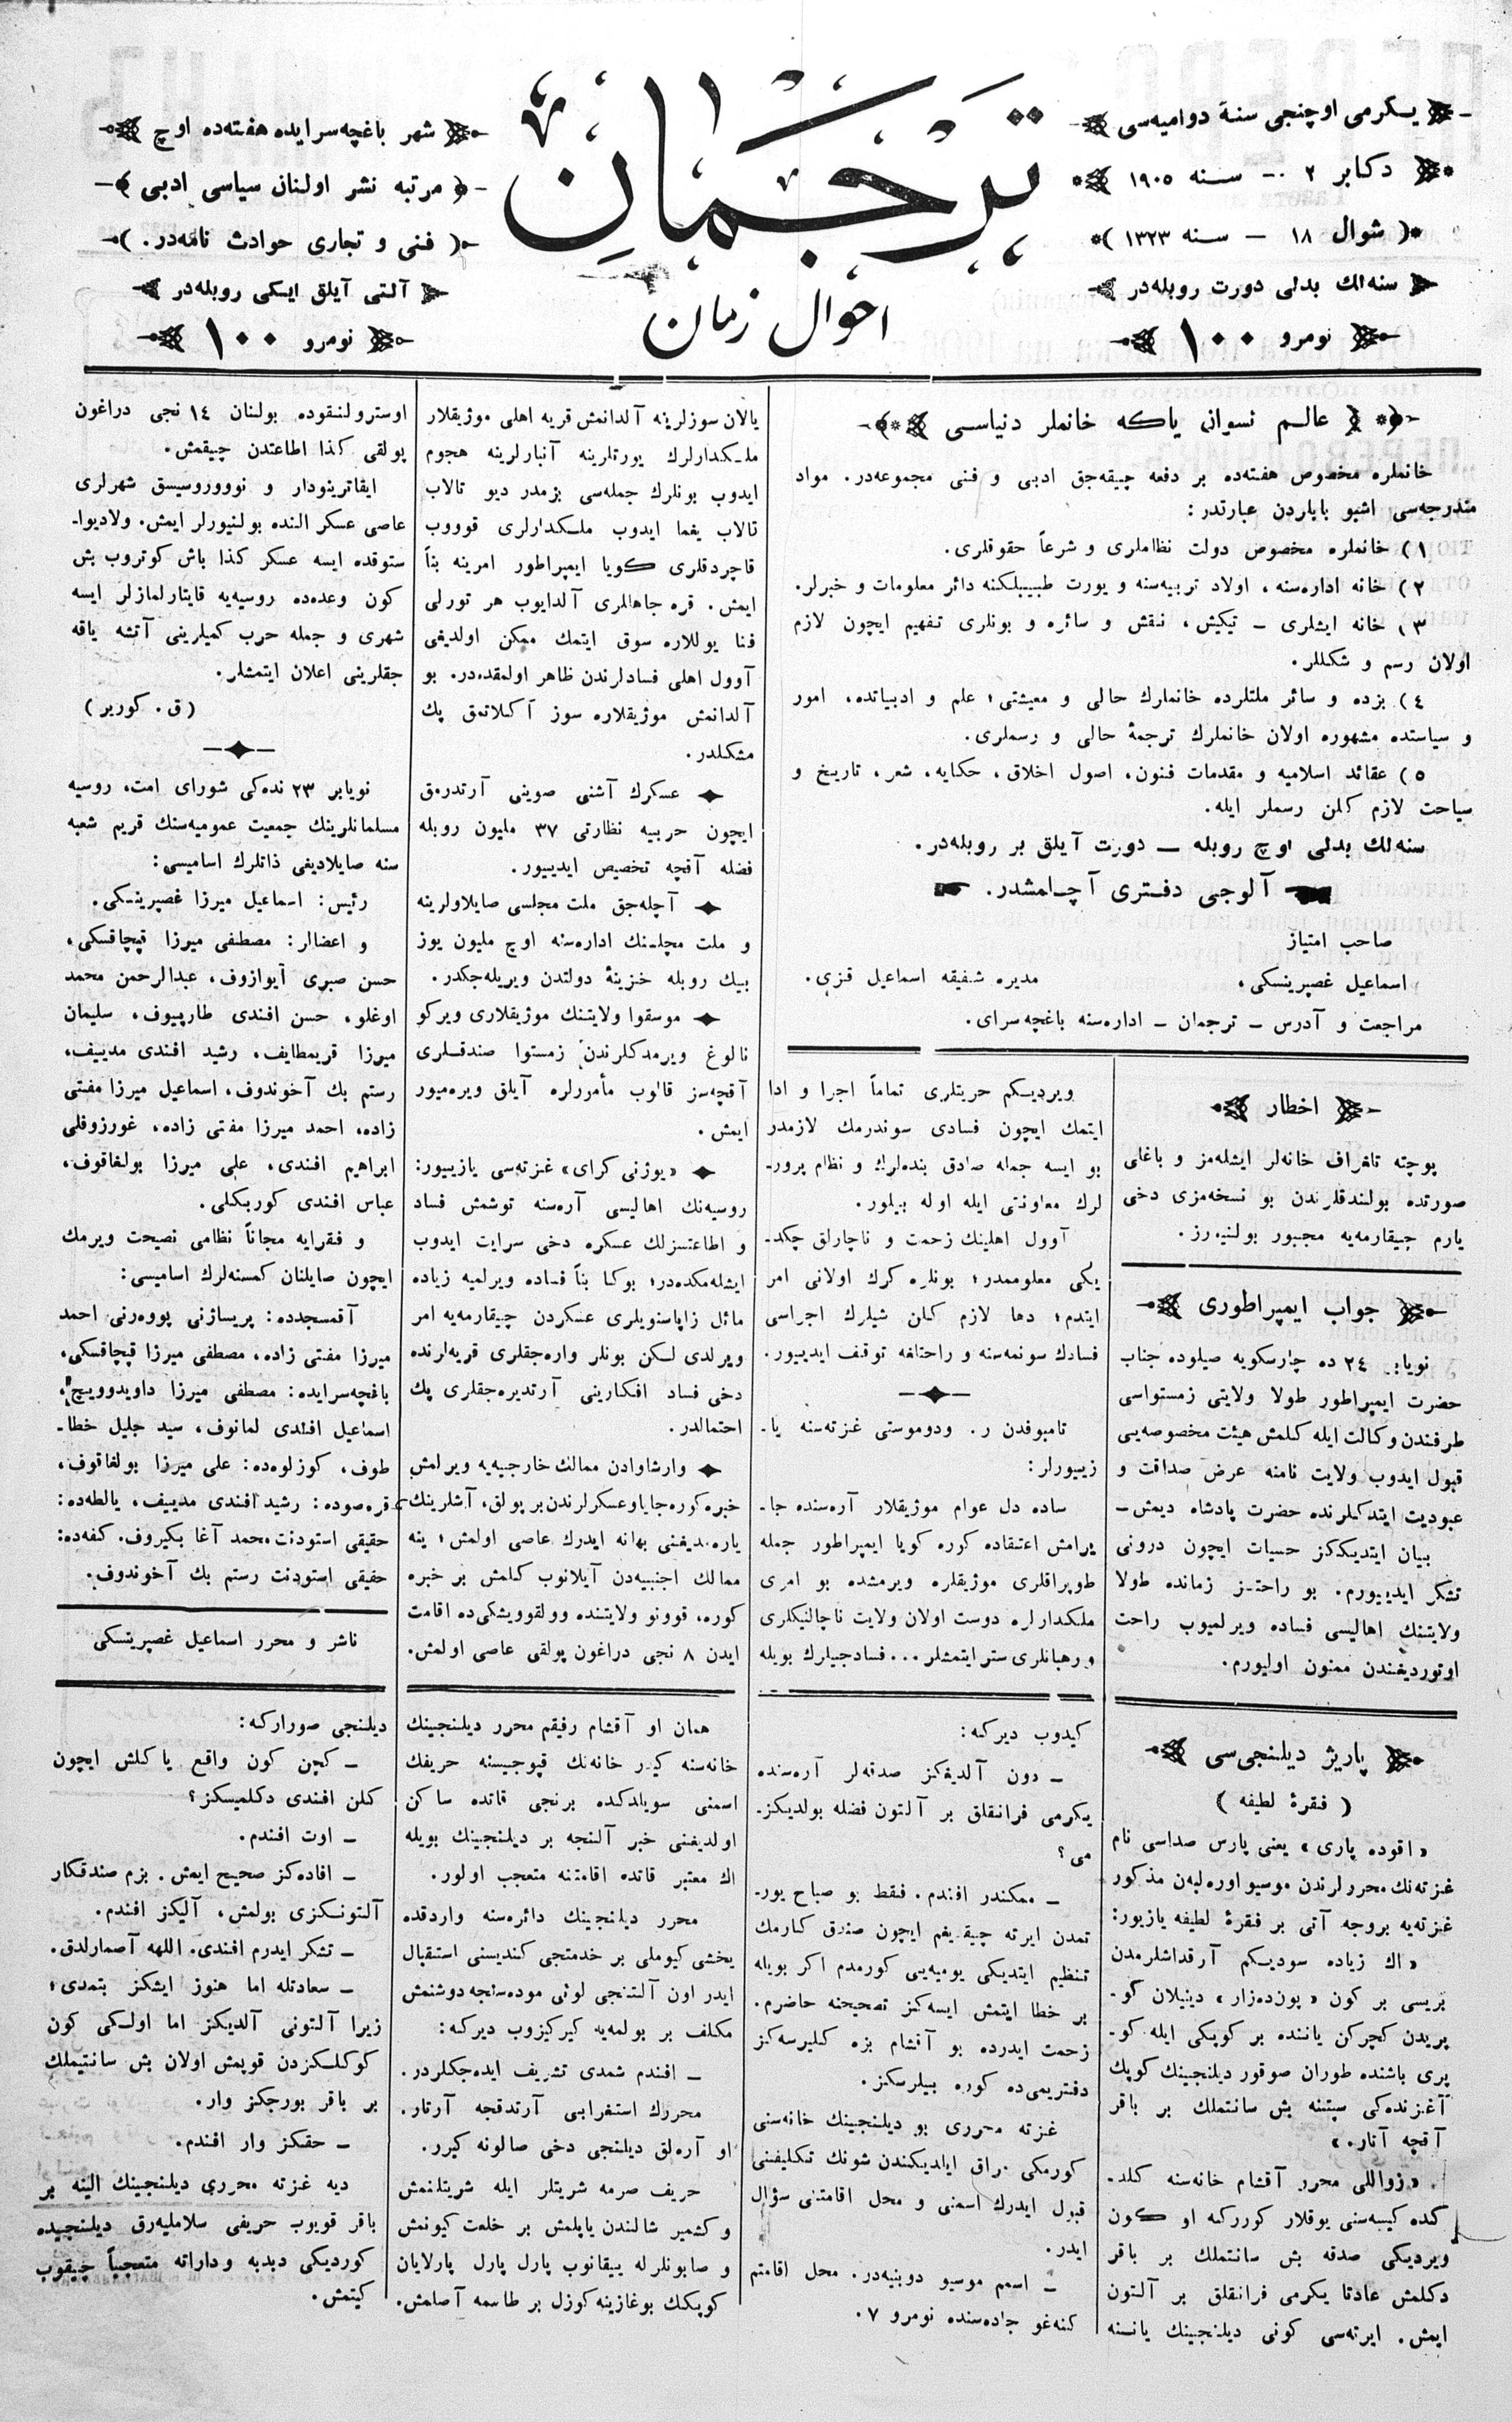 يكرمى اوچنجى سنۀ دواميه‌سى
دكابر ٢ — سنه ١٩٠٥
( شوال ١٨ — سنه ١٣٢٣ )
سنه‌لك بدلى دورت روبله‌در
نومرو ١٠٠
ترجمان
احوال زمان
شهر باغچه‌سرايده هفته‌ده اوچ
مرتبه نشر اولنان سياسى ادبى
( فنى و تجارى حوادث نامه‌در. )
آلتى آيلق ايكى روبله‌در
نومرو ١٠٠
عالم نسوان ياكه خانملر دنياسى
خانملره مخصوص هفته‌ده بر دفعه چيقه‌جق ادبى و فنى مجموعه‌در. مواد
مندرجه‌سى اشبو بابلردن عبارتدر:
١) خانملره مخصوص دولت نظاملرى و شرعاً حقوقلرى.
٢) خانه اداره‌سنه، اولاد تربيه‌سنه و يورت طبيبلكنه دائر معلومات و خبرلر.
٣) خانه ايشلرى ـ تيكيش، نقش و سائره و بونلرى تفهيم ايچون لازم
اولان رسم و شكللر.
٤) بزده و سائر ملتلرده خانملرك حالى و معيشتى؛ علم و ادبياتده، امور
و سياستده مشهوره اولان خانملرك ترجمۀ حالى و رسملرى.
٥) عقائد اسلاميه و مقدمات فنون، اصول اخلاق، حكايه، شعر، تاريخ و
سياحت لازم كلن رسملر ايله.
سنه‌لك بدلى اوچ روبله — دورت آيلق بر روبله‌در.
آلوجى دفترى آچلمشدر.
صاحب امتياز
اسماعيل غصپرينسكى، مديره شفيقه اسماعيل قزى.
مراجعت و آدرس ـ ترجمان ـ اداره‌سنه باغچه‌سراى.
اخطار
پوچته تلغراف خانه‌لر ايشله‌مز و باغلى
صورتده بولندقلرندن بو نسخه‌مزى دخى
يارم چيقارمه‌يه مجبور بولنيورز.
جواب ايمپراطورى
نويابر ٢٤ ده چارسكويه صيلوده جناب
حضرت ايمپراطور طولا ولايتى زمستواسى
طرفندن وكالت ايله كلمش هيئت مخصوصه‌يى
قبول ايدوب ولايت نامنه عرض صداقت و
عبوديت ايتدكلرنده حضرت پادشاه ديمش ـ
بيان ايتديككز حسيات ايچون درونى
تشكر ايدييورم. بو راحتسز زمانده طولا
ولايتنك اهاليسى فساده ويرلميوب راحت
اوتورديغندن ممنون اوليورم.
ويرديكم حريتلرى تماماً اجرا و ادا
ايتمك ايچون فسادى سوندرمك لازمدر
بو ايسه جمله صادق بنده‌لرك و نظام پرور-
لرك معاونتى ايله اوله بيلور.
آوول اهلينك زحمت و ناچارلق چكد-
يكى معلوممدر؛ بونلره كرك اولانى امر
ايتدم؛ دها لازم كلن شيلرك اجراسى
فسادك سونمه‌سنه و راحتلغه توقف ايدييور.
تامبوفدن ر. ودوموستى غزته‌سنه يا-
زييورلر:
ساده دل عوام موژيقلار آره‌سنده جا-
يرامش اعتقاده كوره كويا ايمپراطور جمله
طوپراقلرى موژيقلره ويرمشده بو امرى
ملكدارلره دوست اولان ولايت ناچالنيكلرى
و رهبانلرى ستر ايتمشلر... فسادجيلرك بويله
يالان سوزلرينه آلدانمش قريه اهلى موژيقلار
ملكدارلرك يورتلرينه آنبارلرينه هجوم
ايدوب بونلرك جمله‌سى بزمدر ديو تالاب
تالاب يغما ايدوب ملكدارلرى قوووب
قاچردقلرى كويا ايمپراطور امرينه بناً
ايمش. قره جاهللرى آلدايوب هر تورلى
فنا يوللاره سوق ايتمك ممكن اولديغى
آوول اهلى فسادلرندن ظاهر اولمقده‌در. بو
آلدانمش موژيقلاره سوز آكلاتمق پك
مشكلدر.
عسكرك آشنى صوينى آرتدرمق
ايچون حربيه نظارتى ٣٧ مليون روبله
فضله آقچه تخصيص ايدييور.
آچله‌جق ملت مجلسى صايلاولرينه
و ملت مجلسنك اداره‌سنه اوچ مليون يوز
بيك روبله خزينۀ دولتدن ويريله‌جكدر.
موسقوا ولايتنك موژيقلارى ويركو
نالوغ ويرمدكلرندن زمستوا صندقلرى
آقچه‌سز قالوب مأمررلره آيلق ويره‌ميور
ايمش.
«يوژنى كراى» غزته‌سى يازييور:
روسيه‌نك اهاليسى آره‌سنه توشمش فساد
و اطاعتسزلك عسكره دخى سرايت ايدوب
ايشله‌مكده‌در؛ بوكا بناً فساده ويرلميه زياده
مائل زاپاسنويلرى عسكردن چيقارمه‌يه امر
ويرلدى لكن بونلر واره‌جقلرى قريه‌لرنده
دخى فساد افكارينى آرتديره‌جقلرى پك
احتمالدر.
وارشاوادن ممالك خارجيه‌يه ويرلمش
خبره كوره جاياوعسكرلرندن بر پولق، آشلرينك
ياره‌مديغنى بهانه ايدرك عاصى اولمش؛ ينه
ممالك اجنبيه‌دن آيلانوب كلمش بر خبره
كوره، قوونو ولايتنده وولقوويشكى‌ده اقامت
ايدن ٨ نجى دراغون پولقى عاصى اولمش.
اوسترولنقوده بولنان ١٤ نجى دراغون
پولقى كذا اطاعتدن چيقمش.
ايقاترينودار و نوووروسيسق شهرلرى
عاصى عسكر النده بولنيورلر ايمش. ولاديوا-
ستوقده ايسه عسكر كذا باش كوتروب بش
كون وعده‌ده روسيه‌يه قايتارلمازلر ايسه
شهرى و جمله حرب كميلرينى آتشه ياقه
جقلرينى اعلان ايتمشلر.
( ق. كورير )
نويابر ٢٣ نده‌كى شوراى امت، روسيه
مسلمانلرينك جمعيت عموميه‌سنك قريم شعبه
سنه صايلاديغى ذاتلرك اساميسى:
رئيس: اسماعيل ميرزا غصپرينسكى.
و اعضالر: مصطفى ميرزا قپچاقسكى،
حسن صبرى آيوازوف، عبدالرحمن محمد
اوغلو، حسن افندى طارپيوف، سليمان
ميرزا قريمطايف، رشيد افندى مدييف،
رستم بك آخوندوف، اسماعيل ميرزا مفتى
زاده، احمد ميرزا مفتى زاده، غورزوفلى
ابراهيم افندى، على ميرزا بولغاقوف،
عباس افندى كوربكلى.
و فقرايه مجاناً نظامى نصيحت ويرمك
ايچون صايلنان كمسنه‌لرك اساميسى:
آقمسجدده: پريساژنى پووه‌رنى احمد
ميرزا مفتى زاده، مصطفى ميرزا قپچاقسكى،
باغچه‌سرايده: مصطفى ميرزا داويدوويچ،
اسماعيل افندى لمانوف، سيد جليل خطا-
طوف، كوزلوه‌ده: على ميرزا بولغاقوف،
قره‌صوده: رشيد افندى مدييف، يالطه‌ده:
حقيقى استودنت محمد آغا بكيروف. كفه‌ده:
حقيقى استودنت رستم بك آخوندوف.
ناشر و محرر اسماعيل غصپرينسكى
پاريژ ديلنجى‌سى
( فقرۀ لطيفه )
«اقوده پارى» يعنى پارس صداسى نام
غزته‌نك محررلرندن موسيو اوره‌ليه‌ن مذكور
غزته‌يه بروجه آتى بر فقرۀ لطيفه يازيور:
«اك زياده سوديكم آرقداشلرمدن
بريسى بر كون «پون‌ده‌زار» دينيلان كو-
پريدن كچركن ياننده بر كوپكى ايله كو-
پرى باشنده طوران صوقور ديلنجينك كوپك
آغزنده‌كى سپتنه بش سانتملك بر باقر
آقچه آتار.»
«زواللى محرر آقشام خانه‌سنه كلد-
كده كيسه‌سنى يوقلار كوررکه او كون
ويرديكى صدقه بش سانتملك بر باقر
دكلمش عادتا يكرمى فرانقلق بر آلتون
ايمش. ايرته‌سى كونى ديلنجينك يانسنه
كيدوب ديركه:
ـ دون آلديغكز صدقه‌لر آره‌سنده
يكرمى فرانقلق بر آلتون فضله بولديكز-
مى؟
ـ ممكندر افندم. فقط بو صباح يور-
تمدن ايرته چيقديغم ايچون صندق كارمك
تنظيم ايتديكى يوميه‌يى كورمدم اكر بويله
بر خطا ايتمش ايسه‌كز تصحيحنه حاضرم.
زحمت ايدرده بو آقشام بزه كليرسه‌كز
دفتريمى‌ده كوره بيلرسكز.
غزته محررى بو ديلنجينك خانه‌سنى
كورمكى مراق ايلديكندن شونك تكليفنى
قبول ايدرك اسمنى و محل اقامتنى سؤال
ايدر.
ـ اسمم موسيو دوبنيه‌در. محل اقامتم
كنه‌غو جاده‌سنده نومرو ٧.
همان او آقشام رفيقم محرر ديلنجينك
خانه‌سنه كيدر خانه‌نك قپوجيسنه حريفك
اسمنى سويلدكده برنجى قاتده ساكن
اولديغنى خبر آلنجه بر ديلنجينك بويله
اك معتبر قاتده اقامتنه متعجب اولور.
محرر ديلنجينك دائره‌سنه واردقده
يخشى كيوملى بر خدمتجى كنديسنى استقبال
ايدر اون آلتنجى لوئى موده‌سنجه دوشنمش
مكلف بر بولمه‌يه كيركيزوب ديركه:
ـ افندم شمدى تشريف ايده‌جكلردر.
محررك استغرابى آرتدقجه آرتار.
او آره‌لق ديلنجى دخى صالونه كيرر.
حريف صرمه شريتلر ايله شريتلنمش
و كشمير شالندن ياپلمش بر خلعت كيونمش
و صابونلرله ييقانوب پارل پارل پارلايان
كوپكك بوغازينه كوزل بر طاسمه آصلمش.
ديلنجى صورارکه:
ـ كچن كون واقع ياكلش ايچون
كلن افندى دكلميسكز؟
ـ اوت افندم.
ـ افاده‌كز صحيح ايمش. بزم صندقكار
آلتونكزى بولمش، آليكز افندم.
ـ تشكر ايدرم افندى. اللهه آصمارلدق.
ـ سعادتله اما هنوز ايشكز بتمدى؛
زيرا آلتونى آلديكز اما اولكى كون
كوكلكزدن قوپمش اولان بش سانتيملك
بر باقر بورجكز وار.
ـ حقكز وار افندم.
ديه غزته محررى ديلنجينك الينه بر
باقر قويوب حريفى سلاملیه‌رق ديلنجيده
كورديكى دبدبه و داراته متعجباً چيقوب
كيتمش.